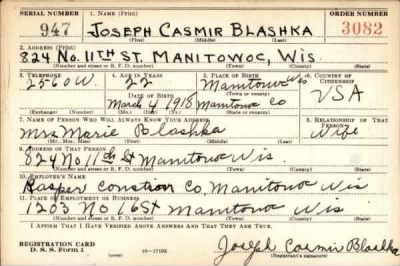 SERIAL NUMBER 1. NAME (Print) ORDER NUMBER
947 JOSEPH CASMIR BLASHKA 3082
(First) (Middle) (Last)
2. ADDRESS (Print)
824 No. 11TH ST. MANITOWOC, WIS.
(Number and street or R. F. D. number) (Town) (County) (State)
3. TELEPHONE 4. AGE IN YEARS 5. PLACE OF BIRTH 6. COUNTRY OF CITIZENSHIP
2560 W. 22 Manitowoc Wis
DATE OF BIRTH (Town or county)
March 4 1918 Manitowoc Co USA
(Exchange) (Number) (Mo.) (Day) (Yr.) (State or country)
7. NAME OF PERSON WHO WILL ALWAYS KNOW YOUR ADDRESS 8. RELATIONSHIP OF THAT PERSON
Mrs Marie Blashka Wife
(Mr., Mrs., Miss) (First) (Middle) (Last)
9. ADDRESS OF THAT PERSON
824 No 11th St Manitowoc Wis.
(Number and street or R. F. D. number) (Town) (County) (State)
10. EMPLOYER'S NAME
Kasper Constion Co, Manitowoc Wis
11. PLACE OF EMPLOYMENT OR BUSINESS
1203 No 16 St Manitowoc Wis
(Number and street or R. F. D. number) (Town) (County) (State)
I AFFIRM THAT I HAVE VERIFIED ABOVE ANSWERS AND THAT THEY ARE TRUE.
REGISTRATION CARD
D. S. S. FORM 1 (over) Joseph Casmir Blashka
(Registrant's signature)